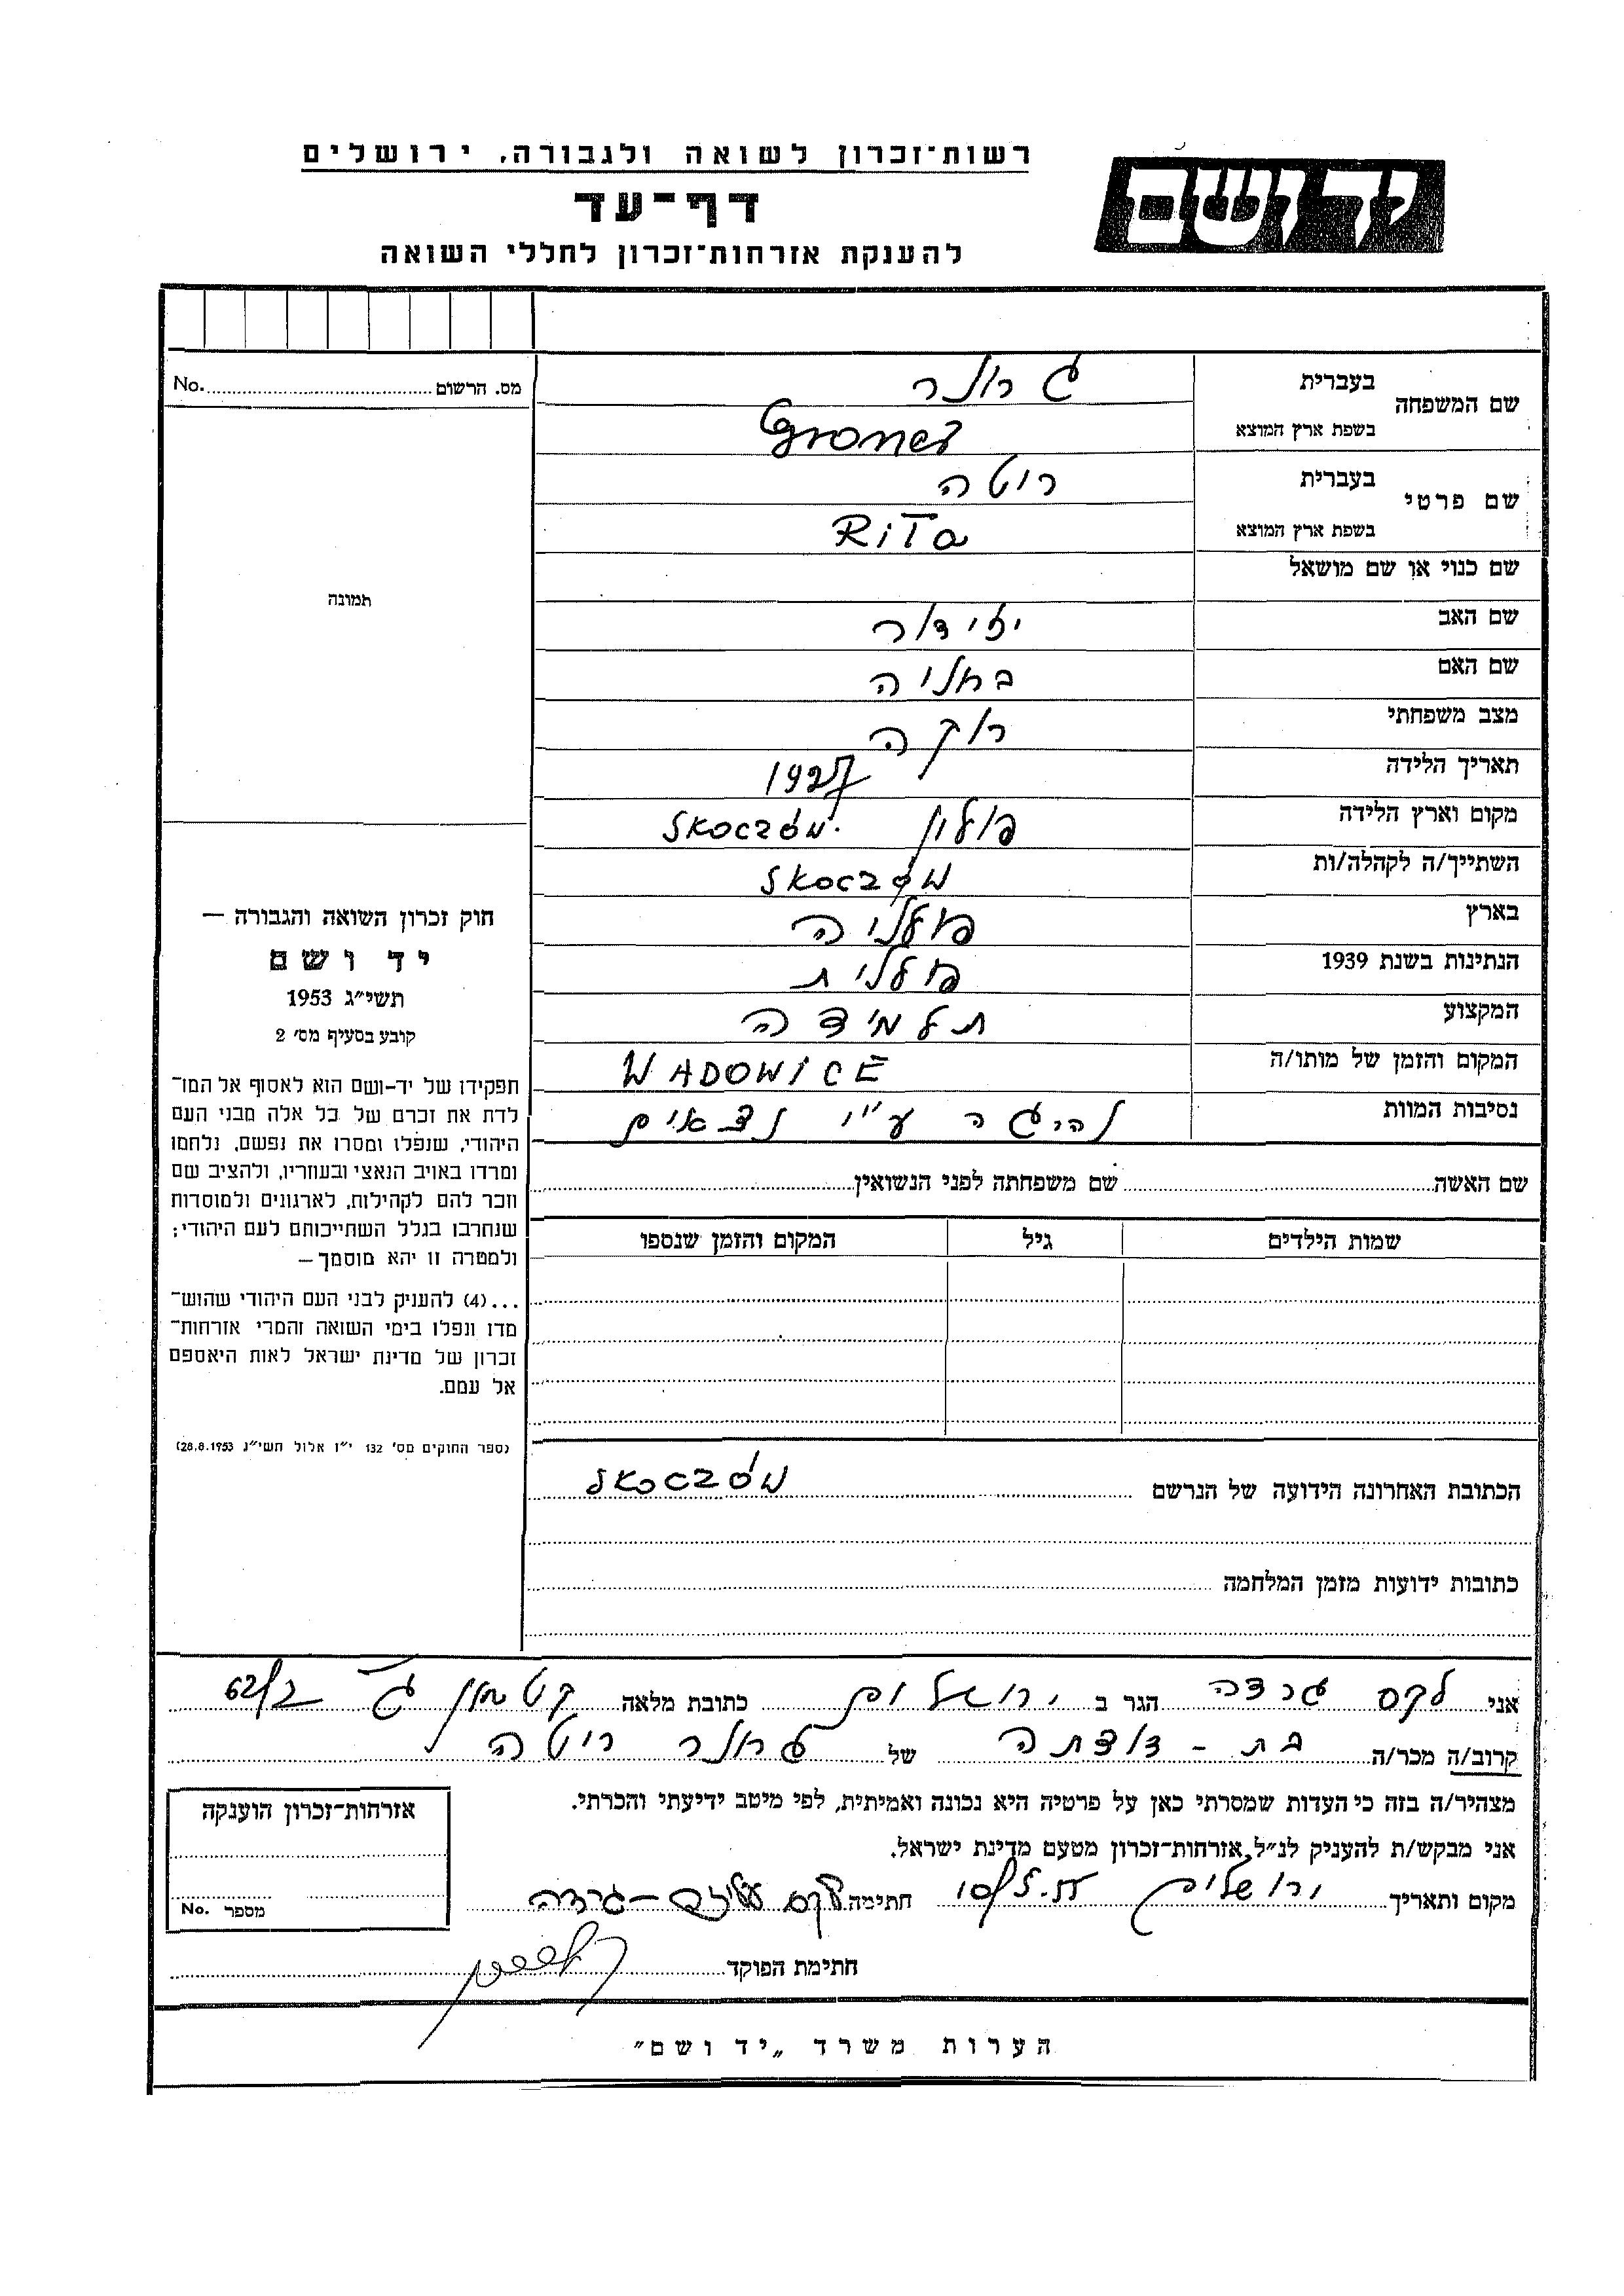 יד ושם
רשות־זכרון לשואה ולגבורה, ירושלים
דף־עד
להענקת אזרחות־זכרון לחללי השואה
מס. הרשום No.
תמונה
שם המשפחה בעברית גרונר
בשפת ארץ המוצא Groner
שם פרטי בעברית ריטה
בשפת ארץ המוצא RiTa
שם כנוי או שם מושאל
שם האב יזידור
שם האם
מצב משפחתי רוקה
תאריך הלידה 1927
מקום וארץ הלידה פולין סקוצ'וב
השתייך/ה לקהלה/ות
בארץ פולניה
הנתינות בשנת 1939 פולנית
המקצוע תלמידה
המקום והזמן של מותו/ה WADOWICE
נסיבות המוות נהרגה ע"י נצאים
שם האשה שם משפחתה לפני הנשואין
שמות הילדים גיל המקום והזמן שנספו
הכתובת האחרונה הידועה של הנרשם
כתובות ידועות מזמן המלחמה
חוק זכרון השואה והגבורה —
יד ושם
תשי״ג 1953
קובע בסעיף מס׳ 2
תפקידו של יד-ושם הוא לאסוף אל המו־
לדת את זכרם של כל אלה מבני העם
היהודי, שנפלו ומסרו את נפשם, נלחמו
ומרדו באויב הנאצי ובעוזריו, ולהציב שם
וזכר להם לקהילות, לארגונים ולמוסדות
שנחרבו בגלל השתייכותם לעם היהודי;
ולמטרה זו יהא מוסמך —
...(4) להעניק לבני העם היהודי שהוש־
מדו ונפלו בימי השואה והמרי אזרחות־
זכרון של מדינת ישראל לאות היאספם
אל עמם.
(ספר החוקים מס׳ 132 י״ז אלול תשי״ג 28.8.1953)
אני לקס גרדה הגר ב ירושלים כתובת מלאה קטמון ג' 62/2
קרוב/ה מכר/ה בת - דודתה של גרונר ריטה
מצהיר/ה בזה כי העדות שמסרתי כאן על פרטיה היא נכונה ואמיתית, לפי מיטב ידיעתי והכרתי.
אני מבקש/ת להעניק לנ״ל אזרחות־זכרון מטעם מדינת ישראל.
מקום ותאריך ירושלים חתימה
חתימת הפוקד
אזרחות־זכרון הוענקה
מספר No.
הערות משרד „יד ושם״